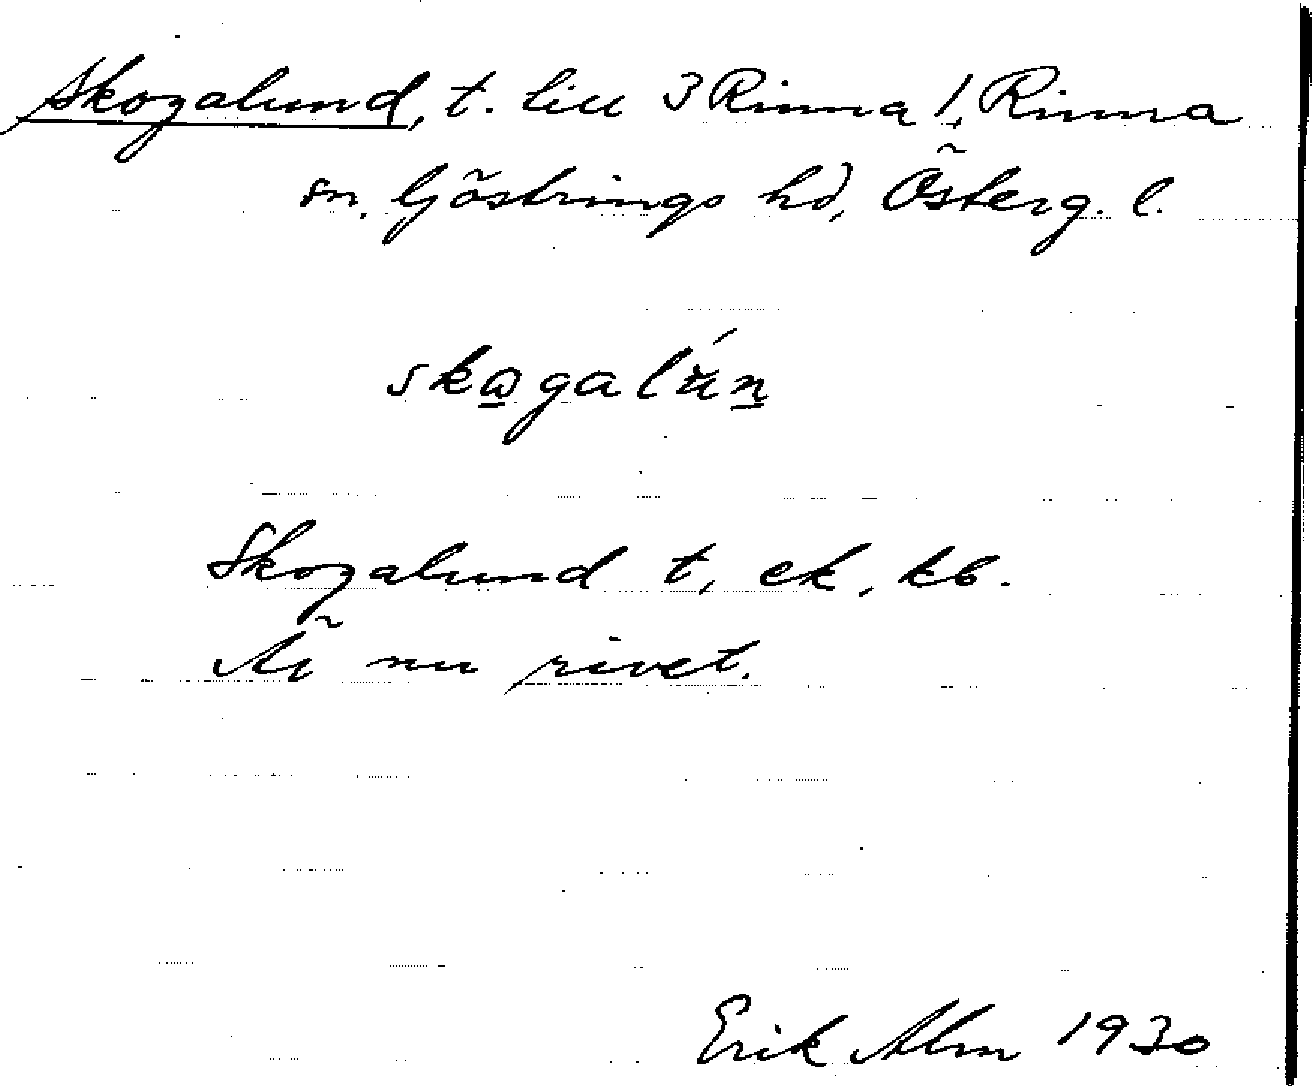 Skogalund, t. till 3 Rinna 1, Rinna
sn. Göstrings hd, Österg. l.
Skogalund t, ek, kb.
Är nu rivet.
Erik Alm 1930